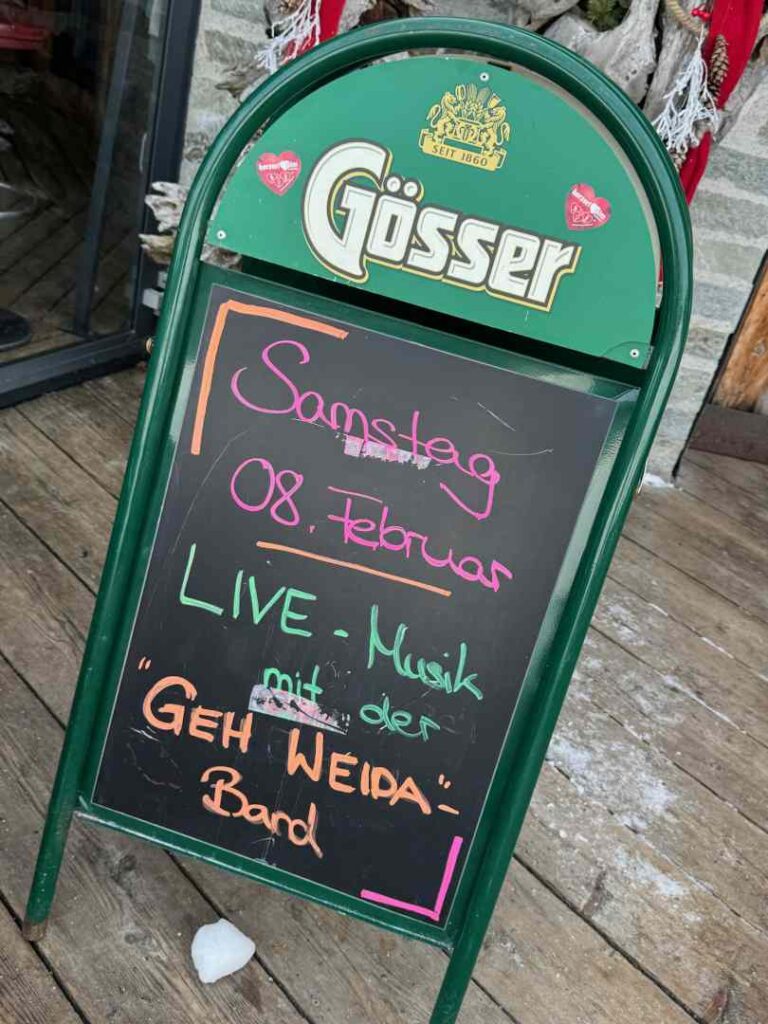 SEIT 1860
Gösser
Samstag
08. Februar
LIVE - Musik
mit der
"GEH WEIDA"-
Band